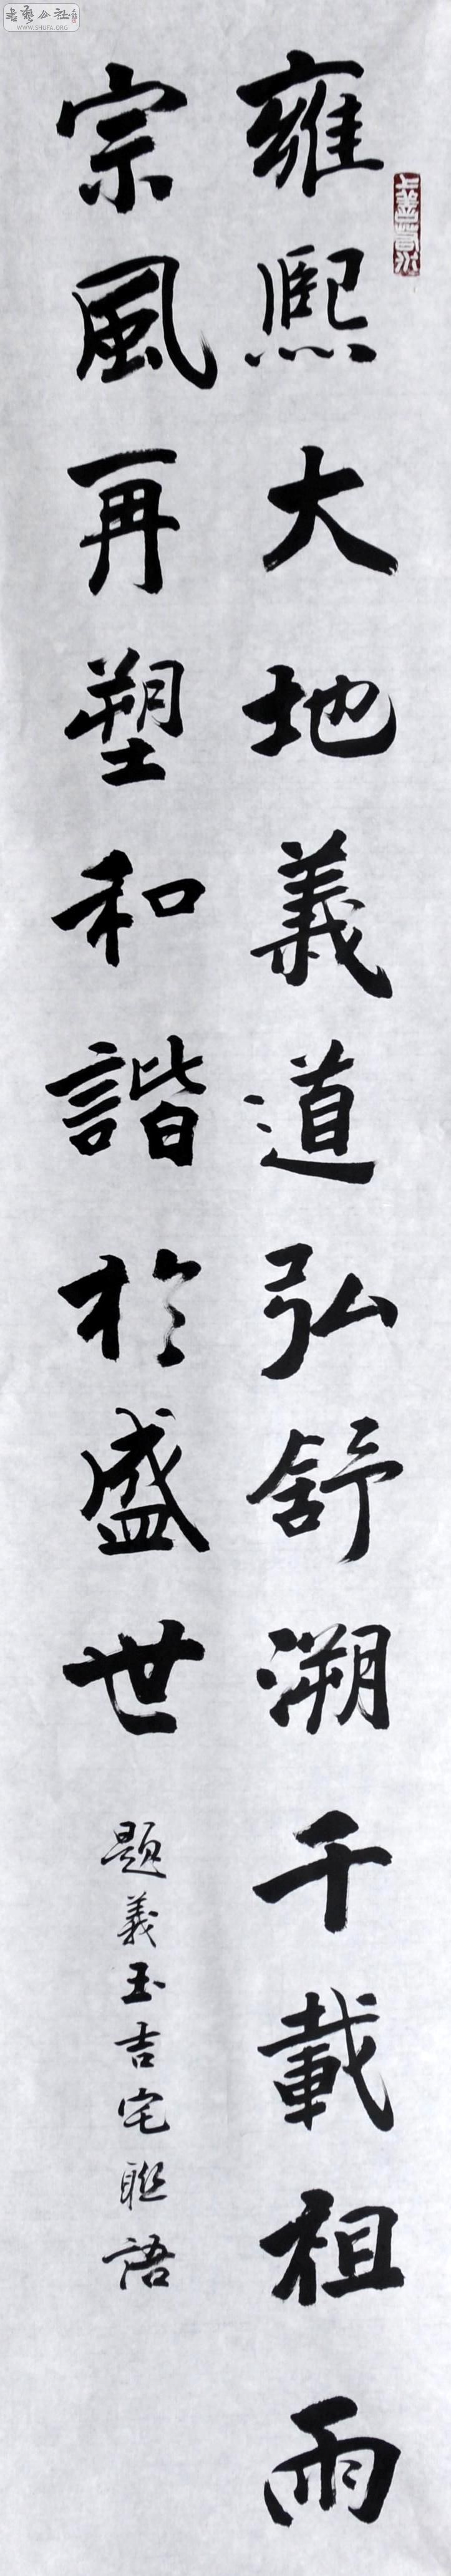 雍熙大地義道弘舒溯千載祖雨
宗風再塑和諧於盛世
題義玉吉宅聯語
上善若水
书艺公社
WWW.SHUFA.ORG